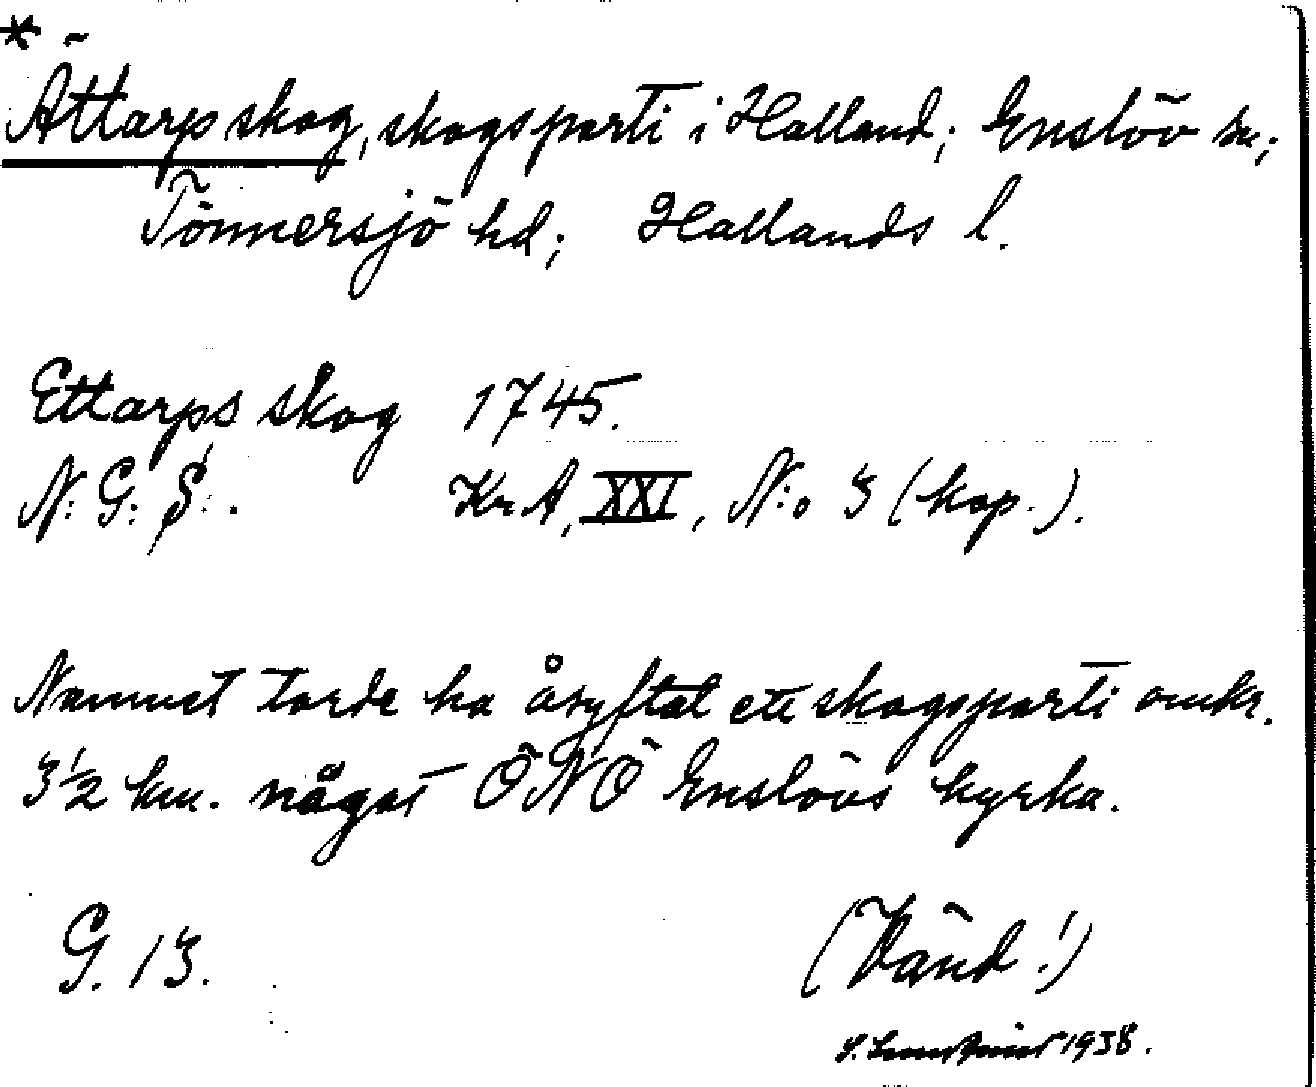 *
Ättarp skog, skogsparti i Halland; Enslöv sn;
Tönnersjö hd; Hallands l.
Ettarps skog 1745.
N: G: S: . KrA, XXI, N:o 3 (kop.).
Namnet torde ha åsyftat ett skogsparti omkr.
3 1/2 km. något ÖNÖ Enslövs kyrka.
G. 13. (Vänd!)
1938.